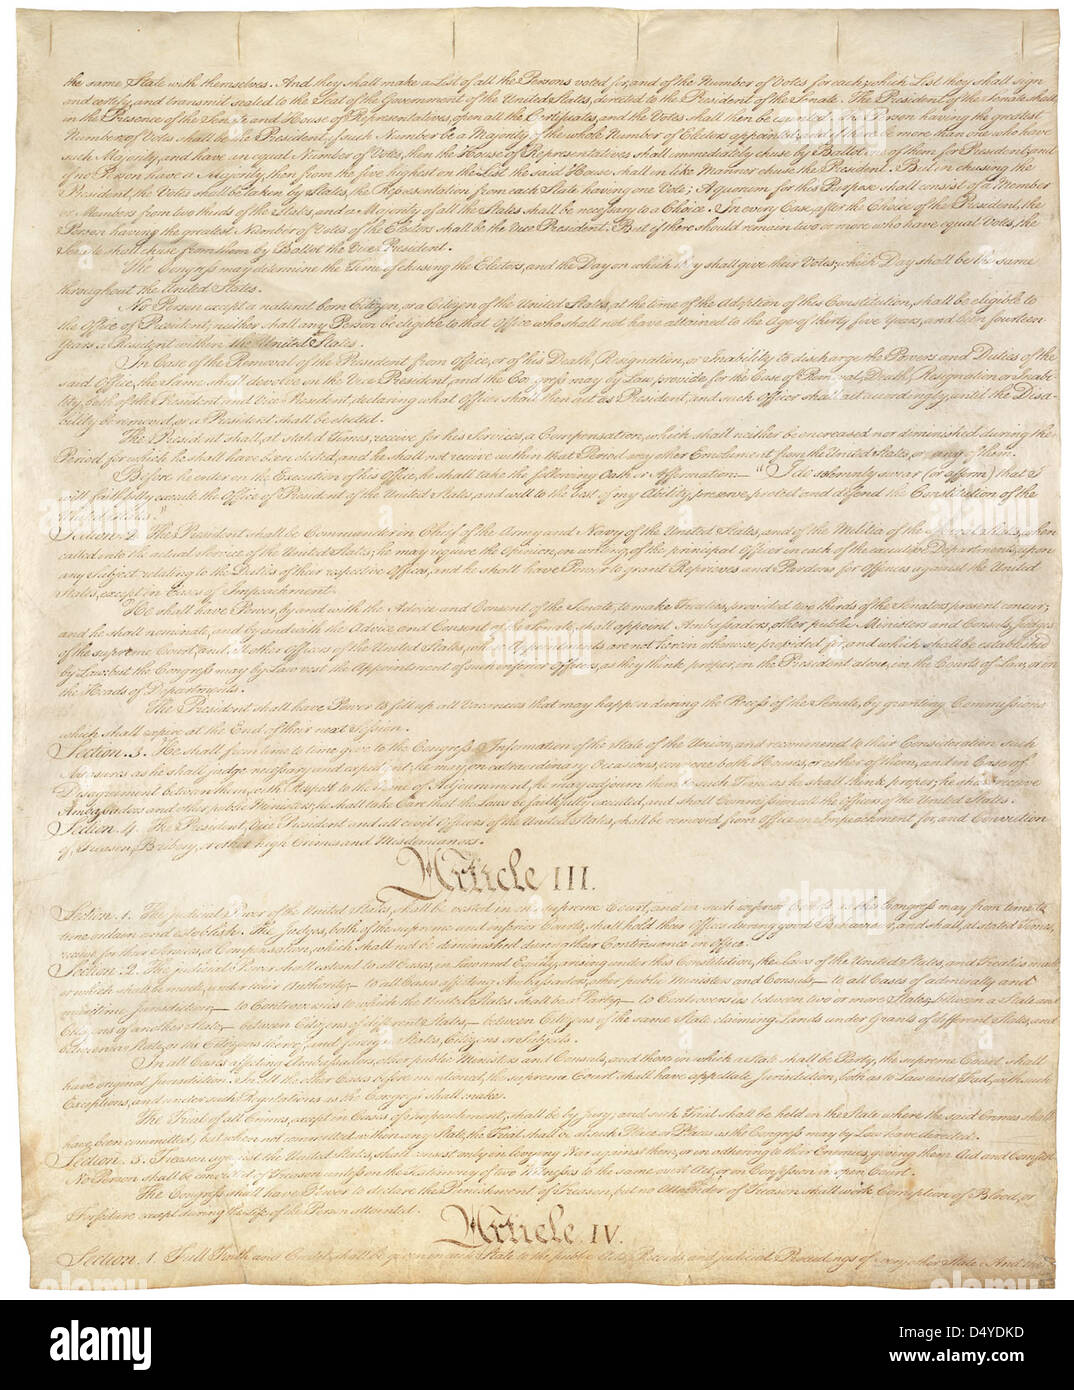 the same State with themselves. And they shall make a List of all the Persons voted for, and of the Number of Votes for each; which List they shall sign
and certify, and transmit sealed to the Seat of the Government of the United States, directed to the President of the Senate. The President of the Senate shall,
in the Presence of the Senate and House of Representatives, open all the Certificates, and the Votes shall then be counted. The Person having the greatest
Number of Votes shall be the President, if such Number be a Majority of the whole Number of Electors appointed; and if there be more than one who have
such Majority, and have an equal Number of Votes, then the House of Representatives shall immediately chuse by Ballot one of them for President; and
if no Person have a Majority, then from the five highest on the List the said House shall in like Manner chuse the President. But in chusing the
President, the Votes shall be taken by States, the Representation from each State having one Vote; A quorum for this Purpose shall consist of a Member
or Members from two thirds of the States, and a Majority of all the States shall be necessary to a Choice. In every Case, after the Choice of the President, the
Person having the greatest Number of Votes of the Electors shall be the Vice President. But if there should remain two or more who have equal Votes, the
Senate shall chuse from them by Ballot the Vice President.
The Congress may determine the Time of chusing the Electors, and the Day on which they shall give their Votes; which Day shall be the same
throughout the United States.
No Person except a natural born Citizen, or a Citizen of the United States, at the time of the Adoption of this Constitution, shall be eligible to
the Office of President; neither shall any Person be eligible to that Office who shall not have attained to the Age of thirty five Years, and been fourteen
Years a Resident within the United States.
In Case of the Removal of the President from Office, or of his Death, Resignation, or Inability to discharge the Powers and Duties of the
said Office, the Same shall devolve on the Vice President, and the Congress may by Law provide for the Case of Removal, Death, Resignation or Inabi-
lity, both of the President and Vice President, declaring what Officer shall then act as President, and such Officer shall act accordingly, until the Disa-
bility be removed, or a President shall be elected.
The President shall, at stated Times, receive for his Services, a Compensation, which shall neither be encreased nor diminished during the
Period for which he shall have been elected, and he shall not receive within that Period any other Emolument from the United States, or any of them.
Before he enter on the Execution of his Office, he shall take the following Oath or Affirmation:— "I do solemnly swear (or affirm) that I
will faithfully execute the Office of President of the United States, and will to the best of my Ability, preserve, protect and defend the Constitution of the
United States."
Section. 2. The President shall be Commander in Chief of the Army and Navy of the United States, and of the Militia of the several States, when
called into the actual Service of the United States; he may require the Opinion, in writing, of the principal Officer in each of the executive Departments, upon
any Subject relating to the Duties of their respective Offices, and he shall have Power to grant Reprieves and Pardons for Offences against the United
States, except in Cases of Impeachment.
He shall have Power, by and with the Advice and Consent of the Senate, to make Treaties, provided two thirds of the Senators present concur;
and he shall nominate, and by and with the Advice and Consent of the Senate, shall appoint Ambassadors, other public Ministers and Consuls, Judges
of the supreme Court, and all other Officers of the United States, whose Appointments are not herein otherwise provided for, and which shall be established
by Law: but the Congress may by Law vest the Appointment of such inferior Officers, as they think proper, in the President alone, in the Courts of Law, or in
the Heads of Departments.
The President shall have Power to fill up all Vacancies that may happen during the Recess of the Senate, by granting Commissions
which shall expire at the End of their next Session.
Section. 3. He shall from time to time give to the Congress Information of the State of the Union, and recommend to their Consideration such
Measures as he shall judge necessary and expedient; he may, on extraordinary Occasions, convene both Houses, or either of them, and in Case of
Disagreement between them, with Respect to the Time of Adjournment, he may adjourn them to such Time as he shall think proper; he shall receive
Ambassadors and other public Ministers; he shall take Care that the Laws be faithfully executed, and shall Commission all the Officers of the United States.
Section. 4. The President, Vice President and all civil Officers of the United States, shall be removed from Office on Impeachment for, and Conviction
of, Treason, Bribery, or other high Crimes and Misdemeanors.
Article III.
Section. 1. The judicial Power of the United States, shall be vested in one supreme Court, and in such inferior Courts as the Congress may from time to
time ordain and establish. The Judges, both of the supreme and inferior Courts, shall hold their Offices during good Behaviour, and shall, at stated Times,
receive for their Services, a Compensation, which shall not be diminished during their Continuance in Office.
Section. 2. The judicial Power shall extend to all Cases, in Law and Equity, arising under this Constitution, the Laws of the United States, and Treaties made,
or which shall be made, under their Authority;— to all Cases affecting Ambassadors, other public Ministers and Consuls;— to all Cases of admiralty and
maritime Jurisdiction;— to Controversies to which the United States shall be a Party;— to Controversies between two or more States;— between a State and
Citizens of another State;— between Citizens of different States,— between Citizens of the same State claiming Lands under Grants of different States, and
between a State, or the Citizens thereof, and foreign States, Citizens or Subjects.
In all Cases affecting Ambassadors, other public Ministers and Consuls, and those in which a State shall be Party, the supreme Court shall
have original Jurisdiction. In all the other Cases before mentioned, the supreme Court shall have appellate Jurisdiction, both as to Law and Fact, with such
Exceptions, and under such Regulations as the Congress shall make.
The Trial of all Crimes, except in Cases of Impeachment, shall be by Jury; and such Trial shall be held in the State where the said Crimes shall
have been committed; but when not committed within any State, the Trial shall be at such Place or Places as the Congress may by Law have directed.
Section. 3. Treason against the United States, shall consist only in levying War against them, or in adhering to their Enemies, giving them Aid and Comfort.
No Person shall be convicted of Treason unless on the Testimony of two Witnesses to the same overt Act, or on Confession in open Court.
The Congress shall have Power to declare the Punishment of Treason, but no Attainder of Treason shall work Corruption of Blood, or
Forfeiture except during the Life of the Person attainted.
Article. IV.
Section. 1. Full Faith and Credit shall be given in each State to the public Acts, Records, and judicial Proceedings of every other State. And the
alamy
Image ID: D4YDKD
www.alamy.com